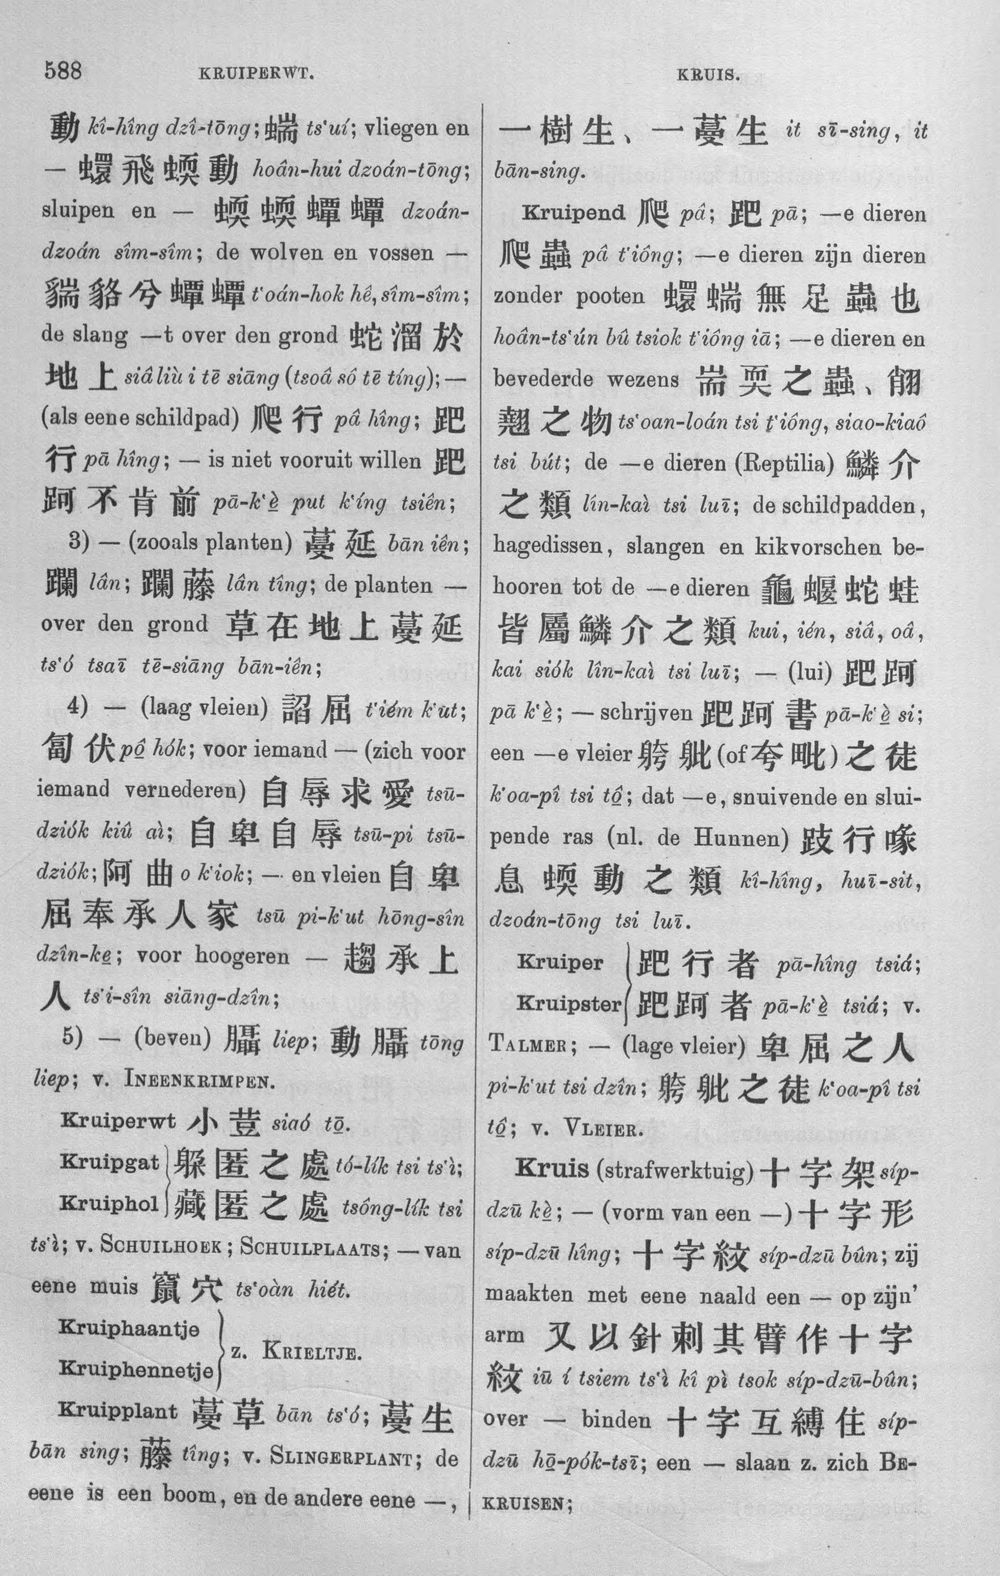 588
KRUIPERWT.
KRUIS.
動 kî-hîng dzî-tōng; 蝡 ts‘uí; vliegen en
— 蠉飛蝡動 hoân-hui dzoán-tōng;
sluipen en — 蝡蝡蟬蟬 dzoán-
dzoán sîm-sîm; de wolven en vossen —
貒貉兮蟬蟬 t‘oán-hok hê, sîm-sîm;
de slang —t over den grond 蛇溜於
地上 siâ liù i tē siāng (tsoâ só tē tíng); —
(als eene schildpad) 爬行 pâ hîng; 跁
行 pā hîng; — is niet vooruit willen 跁
跒不肯前 pā-k‘è put k‘íng tsiên;
3) — (zooals planten) 蔓延 bān iên;
躝 lân; 躝藤 lân tîng; de planten —
over den grond 草在地上蔓延
ts‘ó tsaī tē-siāng bān-iên;
4) — (laag vleien) 諂屈 t‘iém k‘ut;
匐伏 pô hók; voor iemand — (zich voor
iemand vernederen) 自辱求愛 tsū-
dziók kiû aì; 自卑自辱 tsū-pi tsū-
dziók; 阿曲 o k‘iok; — en vleien 自卑
屈奉承人家 tsū pi-k‘ut hōng-sîn
dzîn-ke; voor hoogeren — 趨承上
人 ts‘i-sîn siāng-dzîn;
5) — (beven) 𦠿 liep; 動𦠿 tōng
liep; v. INEENKRIMPEN.
Kruiperwt 小荳 siaó tō.
Kruipgat 躱匿之處 tó-lík tsi ts‘ì;
Kruiphol 藏匿之處 tsông-lík tsi
ts‘ì; v. SCHUILHOEK; SCHUILPLAATS; — van
eene muis 竄穴 ts‘oàn hiét.
Kruiphaantje
Kruiphennetje
z. KRIELTJE.
Kruipplant 蔓草 bān ts‘ó; 蔓生
bān sing; 藤 tîng; v. SLINGERPLANT; de
eene is een boom, en de andere eene —,
一樹生、一蔓生 it sī-sing, it
bān-sing.
Kruipend 爬 pâ; 跁 pā; —e dieren
爬蟲 pâ t‘iông; —e dieren zijn dieren
zonder pooten 蠉蝡無足蟲也
hoân-ts‘ún bû tsiok t‘iông iā; —e dieren en
bevederde wezens 耑耎之蟲、肖
翹之物 ts‘oan-loán tsi t‘iông, siao-kiaô
tsi bút; de —e dieren (Reptilia) 鱗介
之類 lín-kaì tsi luī; de schildpadden,
hagedissen, slangen en kikvorschen be-
hooren tot de —e dieren 龜蝘蛇蛙
皆屬鱗介之類 kui, ién, siâ, oâ,
kai siók lîn-kaì tsi luī; — (lui) 跁跒
pā k‘è; — schrijven 跁跒書 pā-k‘è si;
een —e vleier 骻舭 (of 夸毗) 之徒
k‘oa-pî tsi tô; dat —e, snuivende en slui-
pende ras (nl. de Hunnen) 跂行喙
息蝡動之類 kî-hîng, huī-sit,
dzoán-tōng tsi luī.
Kruiper 跁行者 pā-hîng tsiá;
Kruipster 跁跒者 pā-k‘è tsiá; v.
TALMER; — (lage vleier) 卑屈之人
pi-k‘ut tsi dzîn; 骻舭之徒 k‘oa-pî tsi
tô; v. VLEIER.
Kruis (strafwerktuig) 十字架 síp-
dzū kè; — (vorm van een —) 十字形
síp-dzū hîng; 十字紋 síp-dzū bûn; zij
maakten met eene naald een — op zijn’
arm 又以針刺其臂作十字
紋 iū í tsiem ts‘ì kî pì tsok síp-dzū-bûn;
over — binden 十字互縛住 síp-
dzū hō-pók-tsī; een — slaan z. zich BE-
KRUISEN;